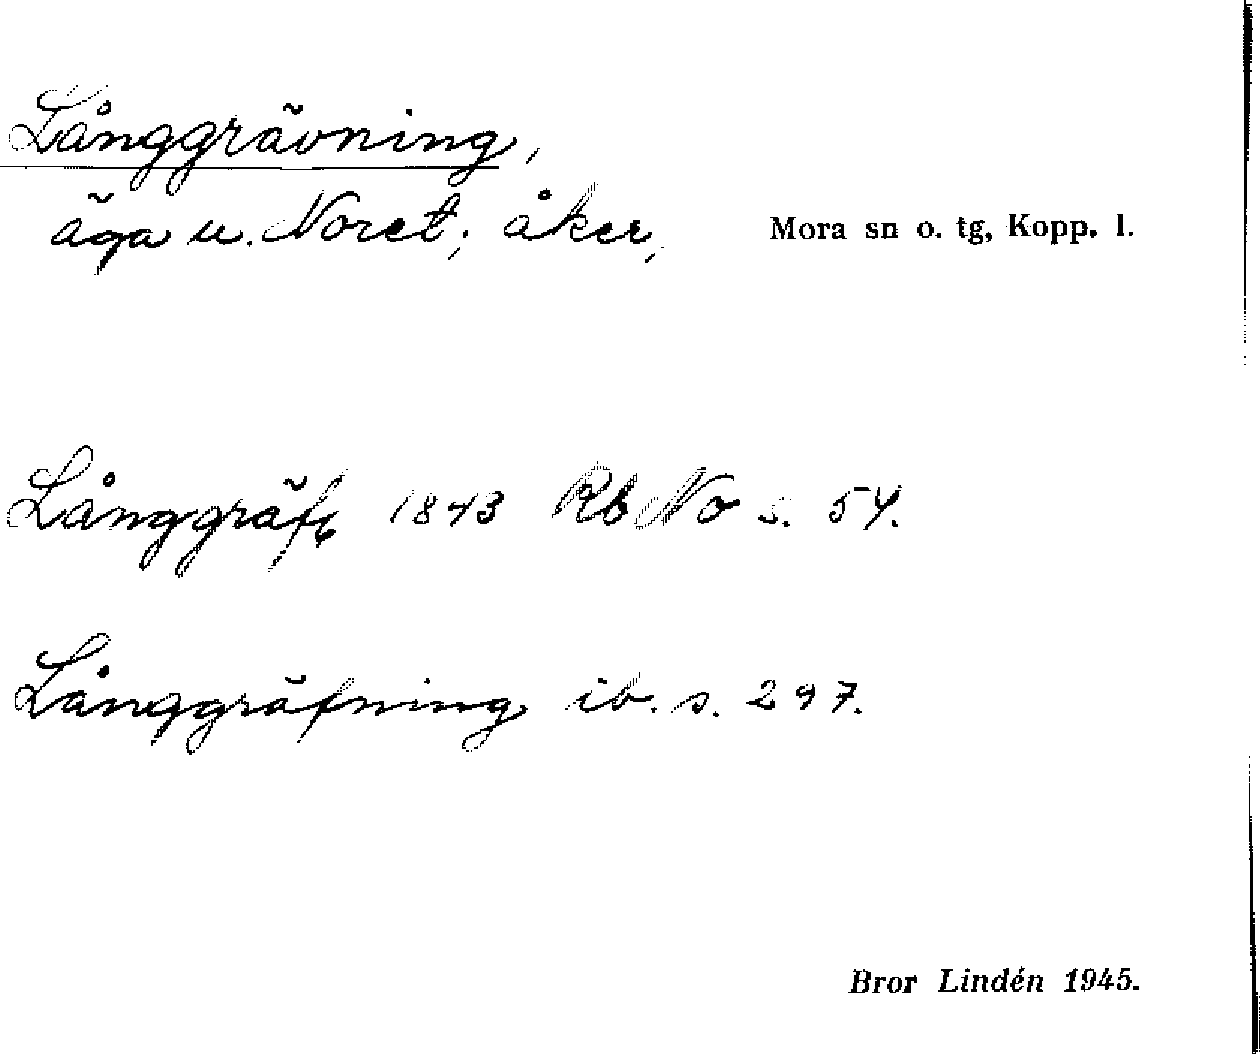 Långgrävning,
äga u. Noret; åker,
Mora sn o. tg, Kopp. l.
Långgräft 1843 Rb No s. 54.
Långgräfning ib. s. 297.
Bror Lindén 1945.